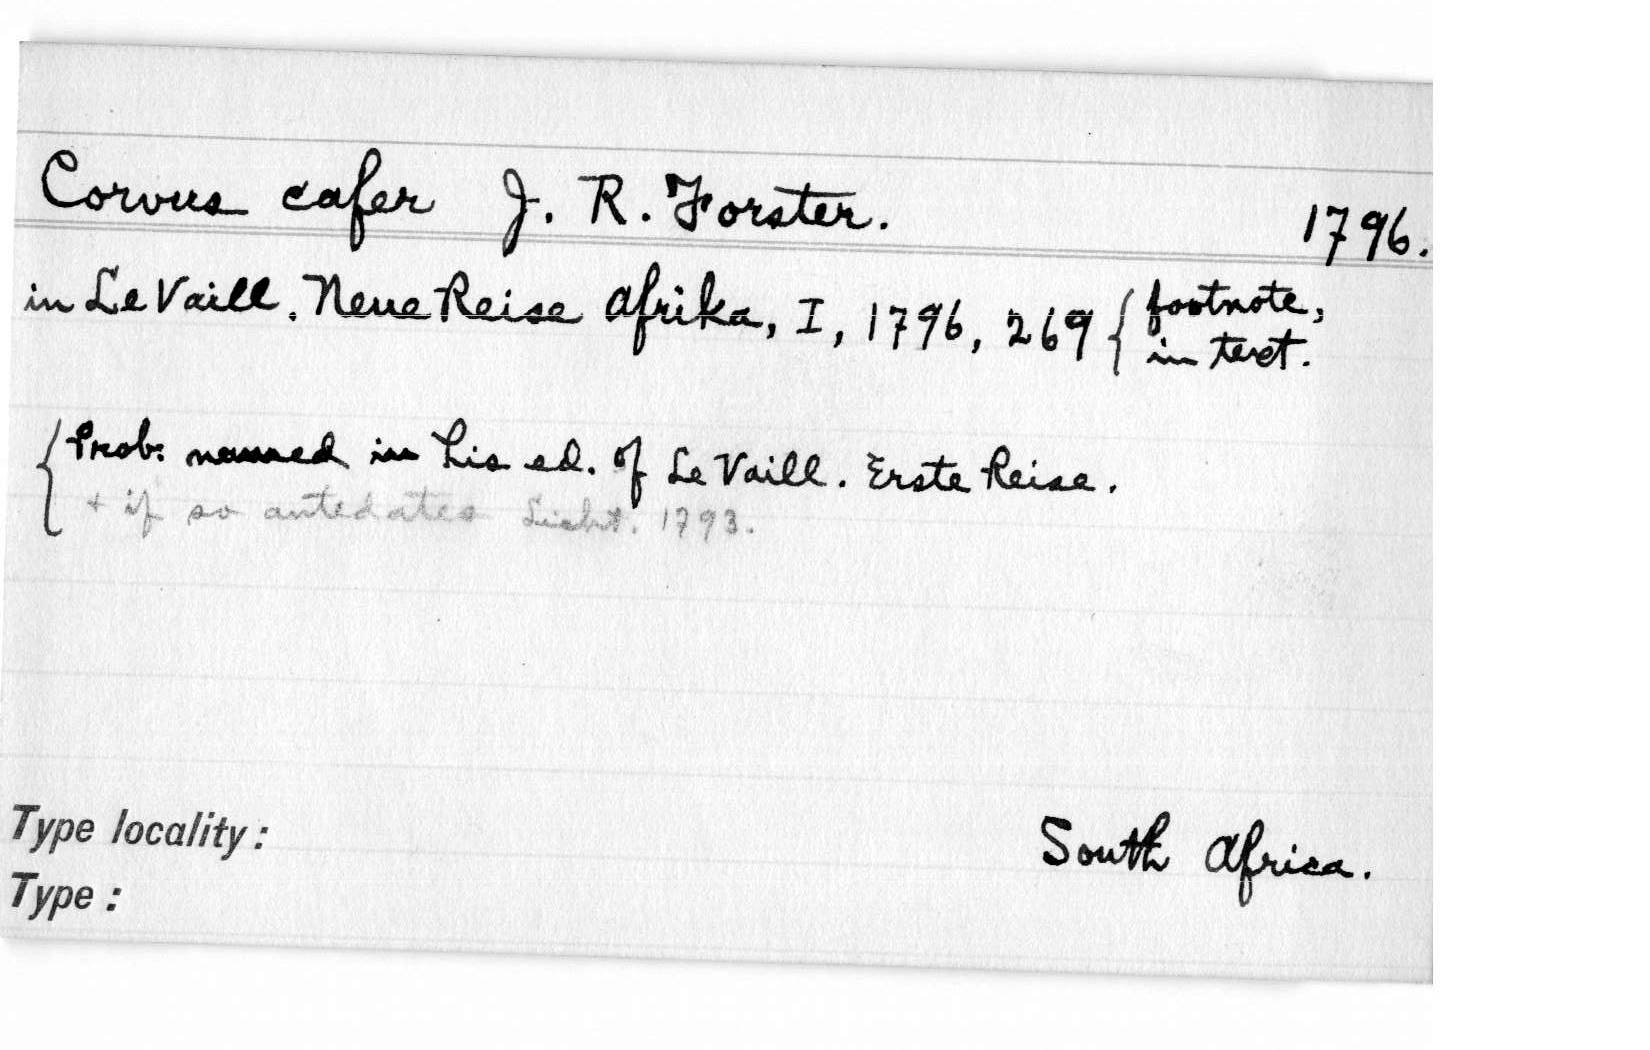 Corvus cafer J. R. Forster. 1796.
in Le Vaill. Neue Reise Afrika, I, 1796, 269 { footnote,
in text.
{ Prob. named in his ed. of Le Vaill. Erste Reise.
+ if so antedates Licht. 1793.
Type locality: South Africa.
Type: